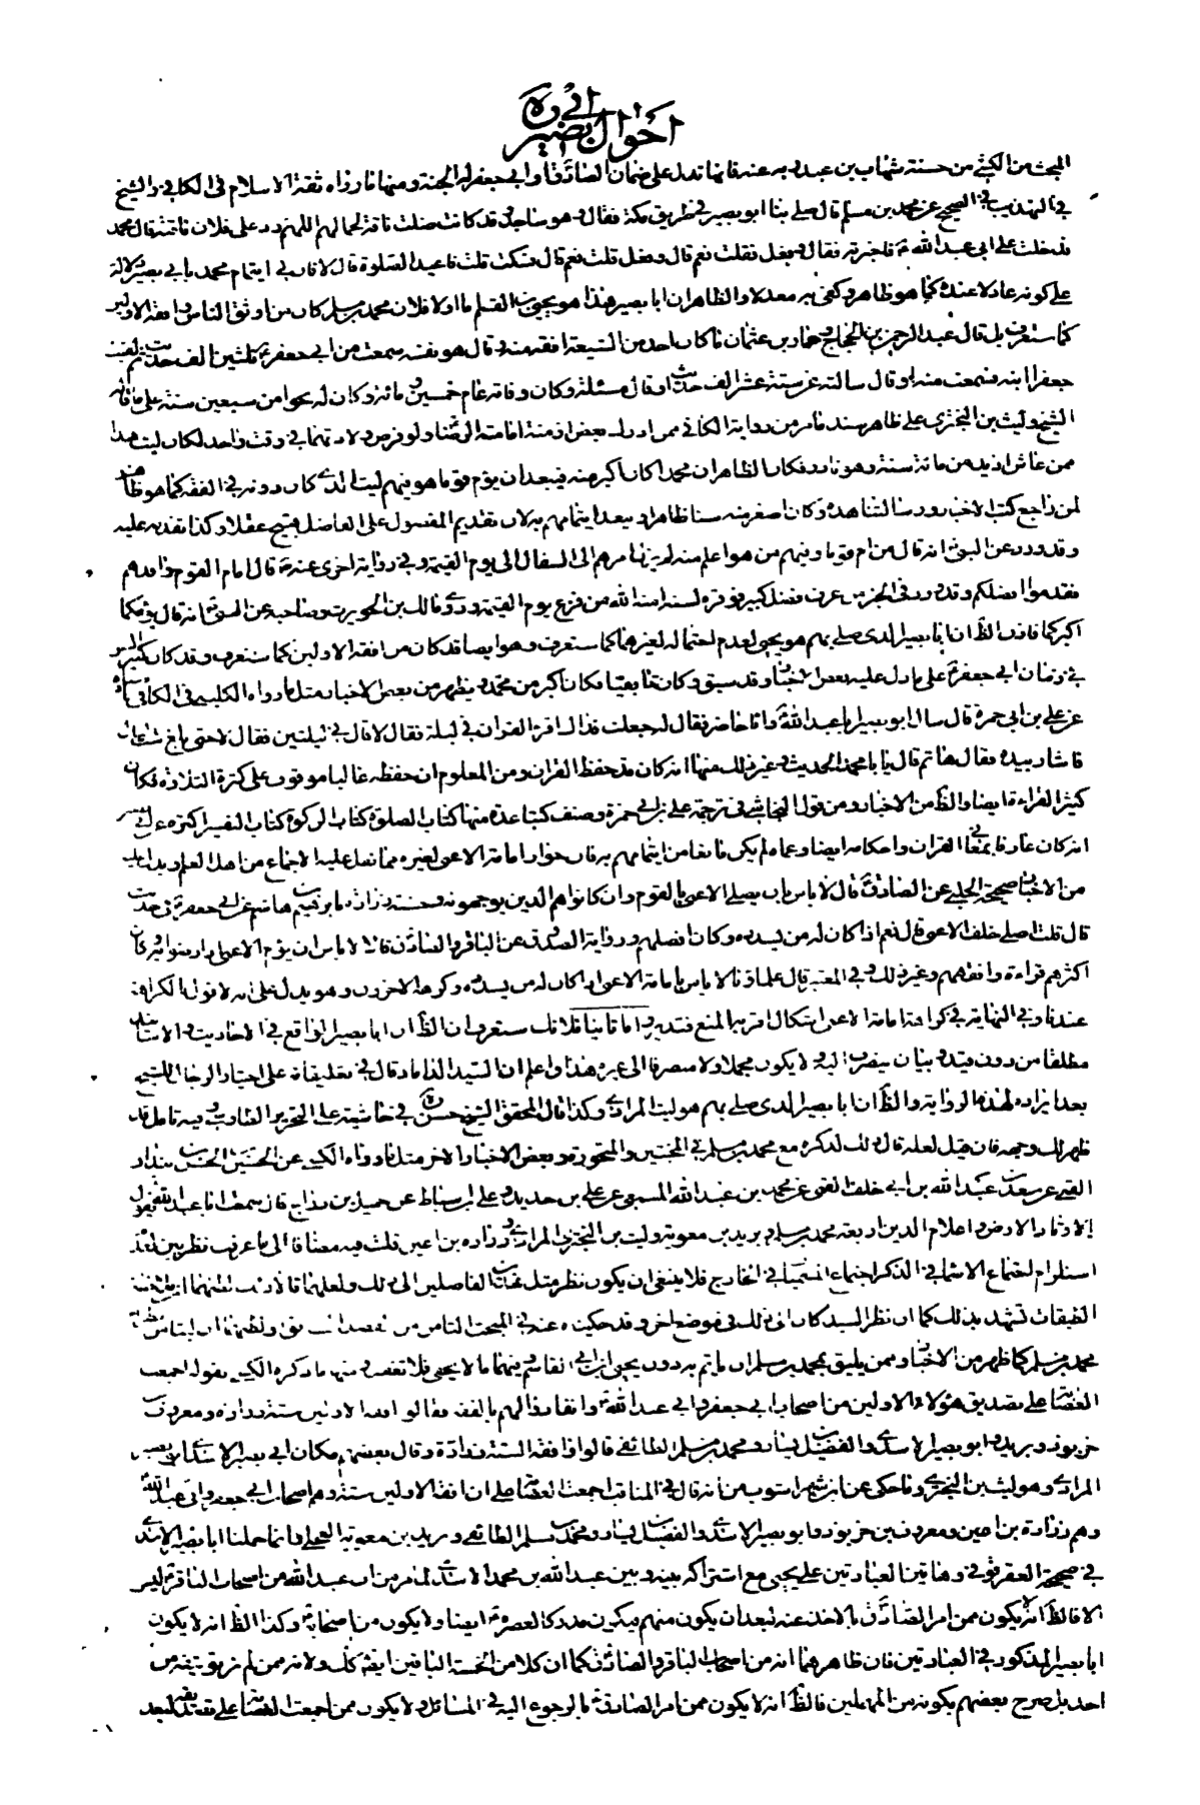 احوال ابى بصير ره
المبحث من الكشى من حسنة شهاب بن عبد ربه عنه فانها تدل على ضمان الصادق وابى جعفر له الجنة ومنها ما رواه ثقة الاسلام فى الكافى والشيخ
فى التهذيب فى الصحيح عن محمد بن مسلم قال صلى بنا ابو بصير فى طريق مكة فقال وهو ساجد وقد كانت ضلت ناقة لجمالهم اللهم رد على فلان ناقته قال محمد
فدخلت على ابى عبد الله ع فاخبرته فقال وفعل فقلت نعم قال وفعل قلت نعم قال فسكت قلت فاعيد الصلوة قال لا فان فى ايتمام محمد بابى بصير دلالة
على كونه عادلا عنده كما هو ظاهر وكفى به معدلا والظاهر ان ابا بصير هذا هو يحيى اما اولا فلان محمد بن مسلم كان من اوثق الناس وافقه الاولين
كما ستعرف بل قال عبد الرحمن بن الحجاج وحماد بن عثمان ما كان احد من الشيعة افقه منه وقال هو نفسه سمعت من ابى جعفر ع ثلثين الف حديث ثم لقيت
جعفرا ابنه فسمعت منه او قال سالته عن ستة عشر الف حديث او قال مسئلة وكان وفاته عام خمسين ومائة وكان له نحوا من سبعين سنة على ما قاله
الشيخ وليث بن البخترى على ظاهر سند من رواية الكافى ممن ادرك بعض ازمنة امامة الرضا ولو فرض ولادتهما فى وقت واحد لكان ليث هذا
ممن عاش ازيد من مائة سنة وهو نادر فكان الظاهر ان محمدا كان اكبر منه فيبعد ان يؤم قوما هو فيهم ليث الذى كان دونه فى الفقه كما هو ظاهر
لمن راجع كتب الاخبار ورسالتنا هذه وكان اصغر منه سنا ظاهرا ويبعد ايتمامهم به لان تقديم المفضول على الفاضل قبيح عقلا وكذا تقديمه عليه
وقد ورد عن النبى ص انه قال من ام قوما وفيهم من هو اعلم منه لم يزل امرهم الى السفال الى يوم القيمة وفى رواية اخرى عنه ع قال امام القوم وافدهم
فقدموا افضلكم وقد ورد فى الخبر من عرف فضل كبير فوقره لسنه امنه الله من فزع يوم القيمة وروى مالك بن الحويرث وصاحبه عن النبى ص انه قال يؤمكما
اكبركما فاذن الظ ان ابا بصير الذى صلى بهم هو يحيى لعدم احتماله لغيرهما كما ستعرف وهو ايضا قد كان من افقه الاولين كما ستعرف وقد كان كبير السن
فى زمان ابى جعفر ع على ما دل عليه بعض الاخبار وقد سبق وكان تابعيا فكان اكبر من محمد ويظهر من بعض الاخبار مثل ما رواه الكلينى فى الكافى
عن على بن ابى حمزة قال سال ابو بصير ابا عبد الله ع وانا حاضر فقال له جعلت فداك اقرء القران فى ليلة فقال لا قال فى ليلتين فقال لا حتى بلغ ست ليال
فاشار بيده فقال ها ثم قال يا با محمد الحديث وغير ذلك منها انه كان قد حفظ القران ومن المعلوم ان حفظه غالبا موقوف على كثرة التلاوة فكان
كثير القراءة ايضا والظ من الاخبار ومن قول النجاشى فى ترجمة على بن ابى حمزة وصنف كتبا عدة منها كتاب الصلوة كتاب الزكوة كتاب التفسير اكثره عن ابى بصير
انه كان عارفا بمعانى القران واحكامه ايضا وعماه لم يكن مانعا من ايتمامهم به فان جواز امامة الاعمى لغيره مما نقل عليه الاجماع من اهل العلم ويدل عليه
من الاخبار صحيحة الحلبى عن الصادق ع قال لا باس بان يصلى الاعمى بالقوم وان كانوا هم الذين يوجهونه وحسنة زرارة بابراهيم بن هاشم عن ابى جعفر ع فى حديث
قال قلت اصلى خلف الاعمى قال نعم اذا كان له من يسدده وكان افضلهم ورواية الصدوق عن الباقر والصادق قالا لا باس ان يؤم الاعمى اذا رضوا به وكان
اكثرهم قراءة وافقههم وغير ذلك وفى المعتبر قال علماؤنا لا باس بامامة الاعمى اذا كان له من يسدده وكرهه الاخرون وهو يدل على انه لا قول بالكراهة
عندنا وفى النهاية فى كراهة امامة الاعمى اشكال اقربه المنع فتدبر واما ثانيا فلانك ستعرف ان الظ ان ابا بصير الواقع فى الاحاديث والاسانيد
مطلقا من دون قيد وبيان ينصرف اليه ولا يكون مجملا ولا منصرفا الى غيره هذا واعلم ان السيد الداماد قال فى تعليقاته على اختيار الرجال للشيخ
بعد ايراده لهذه الرواية والظ ان ابا بصير الذى صلى بهم هو ليث المرادى وكذا قال المحقق الشيخ حسن ره فى حاشيته على التحرير الطاوسى وفيه تامل قد
ظهر لك وجهه فان قيل لعله قال ذلك لذكره مع محمد بن مسلم فى المخبتين وبعض الاخبار الاخر مثل ما رواه الكشى عن الحسين بن الحسن بن بندار
القمى عن سعد بن عبد الله بن ابى خلف القمى عن محمد بن عبد الله المسمعى عن على بن حديد وعلى بن اسباط عن جميل بن دراج قال سمعت ابا عبد الله ع يقول
اوتاد الارض واعلام الدين اربعة محمد بن مسلم وبريد بن معوية وليث بن البخترى المرادى وزرارة بن اعين قلت فيه مضافا الى ما عرف نظر بين لعدم
استلزام اجتماع الاسمين فى الذكر اجتماع المسميين فى الخارج فلا ينبغى ان يكون نظر مثل هذين الفاضلين الى ذلك ولعلهما
الطبقات تشهد بذلك كما ان نظر السيد كان الى ذلك فى موضع اخر وقد حكيته عنه فى المبحث الثامن من
محمد بن مسلم كما ظهر من الاخبار وممن يليق بمحمد بن مسلم ان ياتم به دون يحيى بن ابى القاسم وفيهما ما لا يخفى فلا تغفل ومنها ما ذكره الكشى بقوله اجمعت
العصابة على تصديق هؤلاء الاولين من اصحاب ابى جعفر وابى عبد الله ع وانقادوا لهم بالفقه فقالوا افقه الاولين ستة زرارة ومعروف بن
خربوذ وبريد وابو بصير الاسدى والفضيل بن يسار ومحمد بن مسلم الطائفى قالوا وافقه الستة زرارة وقال بعضهم مكان ابى بصير الاسدى ابو بصير
المرادى وهو ليث بن البخترى وما حكى عن ابن شهراشوب من انه قال فى المناقب اجمعت العصابة على ان افقه الاولين ستة وهم اصحاب ابى جعفر وابى عبد الله ع
وهم زرارة بن اعين ومعروف بن خربوذ وابو بصير الاسدى والفضيل بن يسار ومحمد بن مسلم الطائفى وبريد بن معوية العجلى وانما حملنا ابا بصير الاسدى
فى صحيحة العقرقوفى وهاتين العبارتين على يحيى مع اشتراكه بينه وبين عبد الله بن محمد الاسدى لما مر من ان عبد الله من اصحاب الباقر ع ليس
الا فالظ انه لا يكون ممن امر الصادق ع بالاخذ عنه لبعد ان يكون منهم فيكون مدركا لعصره ع ايضا ولا يكون من اصحابه ع وكذا الظ انه لا يكون
ابا بصير المذكور فى العبارتين فان ظاهرهما انه من اصحاب الباقر والصادق ع كما ان كلا من الخمسة الباقين ايضا كذلك ولانه ممن لم نر توثيقه من
احد بل صرح بعضهم بكونه من المهملين فالظ انه لا يكون ممن امر الصادق ع بالرجوع اليه فى المسائل ولا يكون ممن اجمعت العصابة على تصديقه لبعد